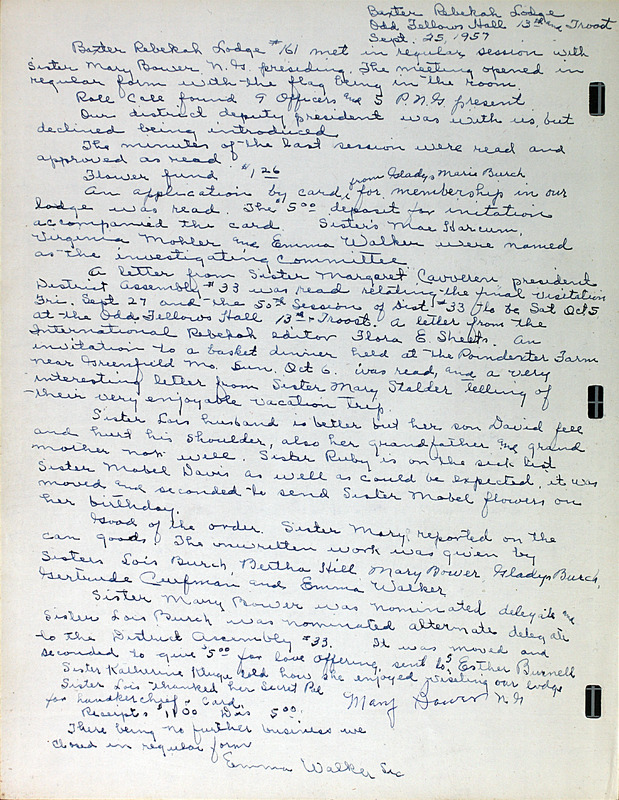 Baxter Rebekah Lodge
Odd Fellows Hall 13th and Troost
Sept. 25, 1957
Baxter Rebekah Lodge #161 met in regular session with
Sister Mary Bower N.G. presiding. The meeting opened in
regular form with the flag being in the room.
Roll Call found 9 Officers and 5 P.N.G's present
Our district deputy president was with us, but
declined being introduced.
The minutes of the last session were read and
approved as read
Flower fund $1.26
An application by card, from Gladys Marie Burch for membership in our
lodge was read. The $5.00 deposit for initation
accompanied the card. Sisters Mae Harcum,
Virginia Mohler and Emma Walker were named
as the investigating Committee
A letter from Sister Margaret president
District Assembly #33 was read relating the final visitation
Fri. Sept 27 and the 50th Session of Dist #33 to be Sat Oct 5
at the Odd Fellows Hall 13th & Troost. A letter from the
International Rebekah editor Flora E Sheets. An
invitation to a basket dinner held at the Poindexter Farm
near Greenfield Mo. Sun. Oct 6. was read, and a very
interesting letter from Sister Mary Stalder telling of
their very enjoyable vacation trip.
Sister Lois husband is better but her son David fell
and hurt his shoulder, also her grandfather and grand
mother not well. Sister Ruby is on the sick list
Sister Mabel Davis as well as could be expected, it was
moved and seconded to send Sister Mabel flowers on
her birthday.
Good of the order. Sister Mary reported on the
can goods. The unwritten work was given by
Sisters Lois Burch, Bertha Hill, Mary Bower, Gladys Burch,
Gertrude Curfman and Emma Walker
Sister Mary Bower was nominated delegate and
Sister Lois Burch was nominated alternate delegate
to the District Assembly #33. It was moved and
seconded to give $5.00 for love offering, sent to Esther Burnell
Sister Katherine Kluge told how she enjoyed visiting our lodge
Sister Lois thanked her Secret Pal
for handkerchief & Card.
Mary Bower N.G
Receipts 11.00 Dis 5.00
There being no further business we
closed in regular form
Emma Walker Sec